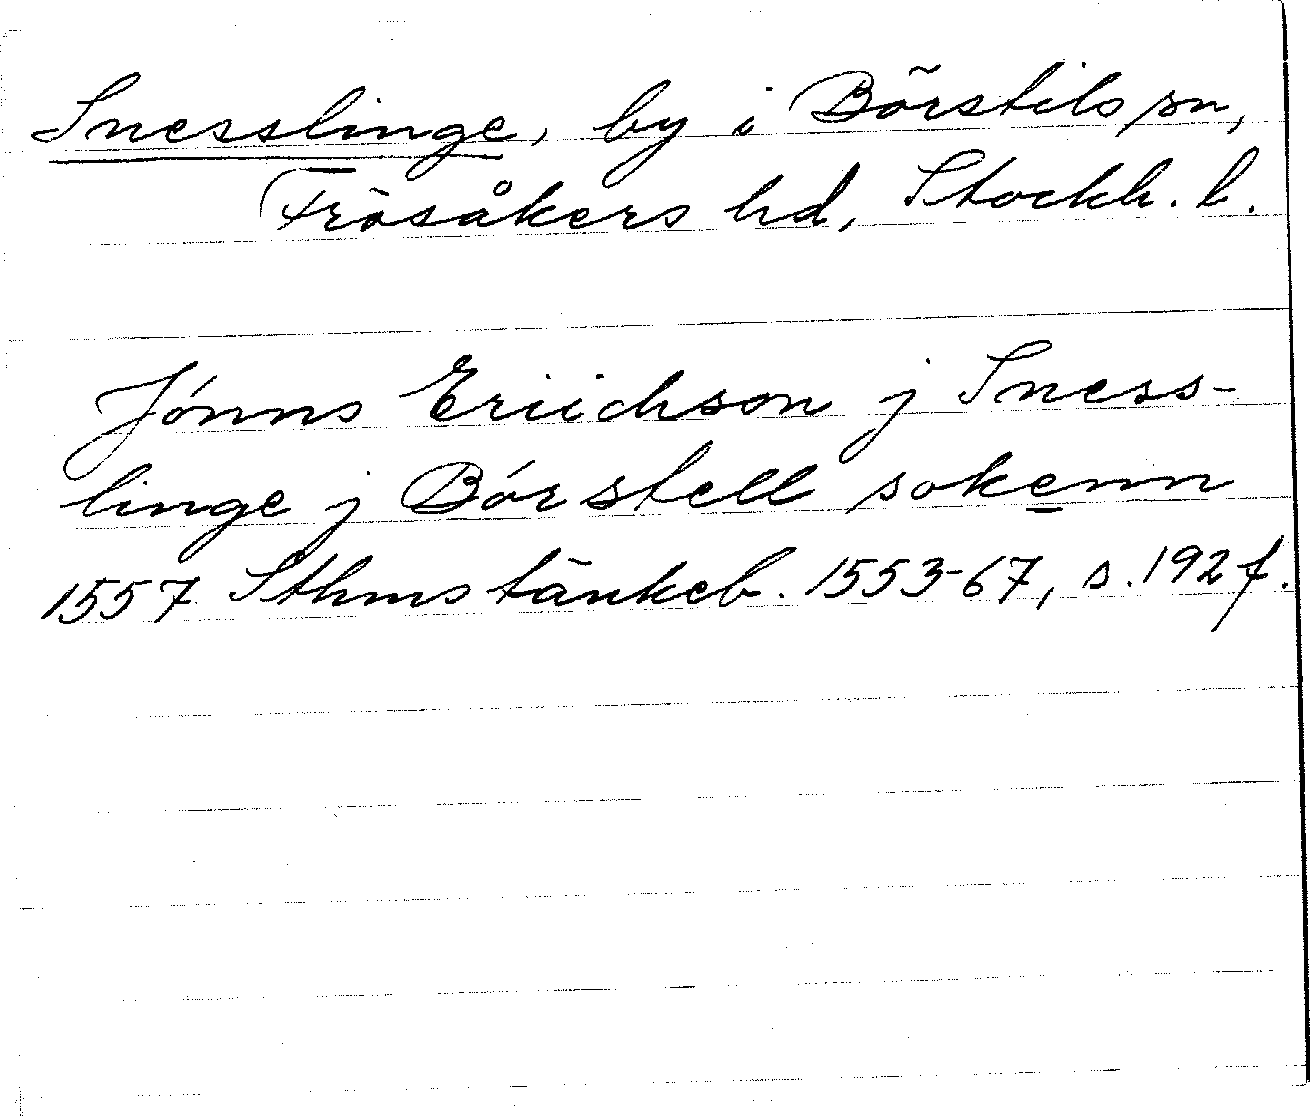 Snesslinge, by i Börstils sn,
Frösåkers hd, Stockh. l.
Jónns Eriichson j Sness-
linge j Bórstell sokenn
1557 Sthms tänkeb. 1553-67, s. 192 f.